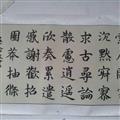 沉默寂寥
求古尋論
散慮逍遙
欣奏累遣
慼謝歡招
園莽抽條